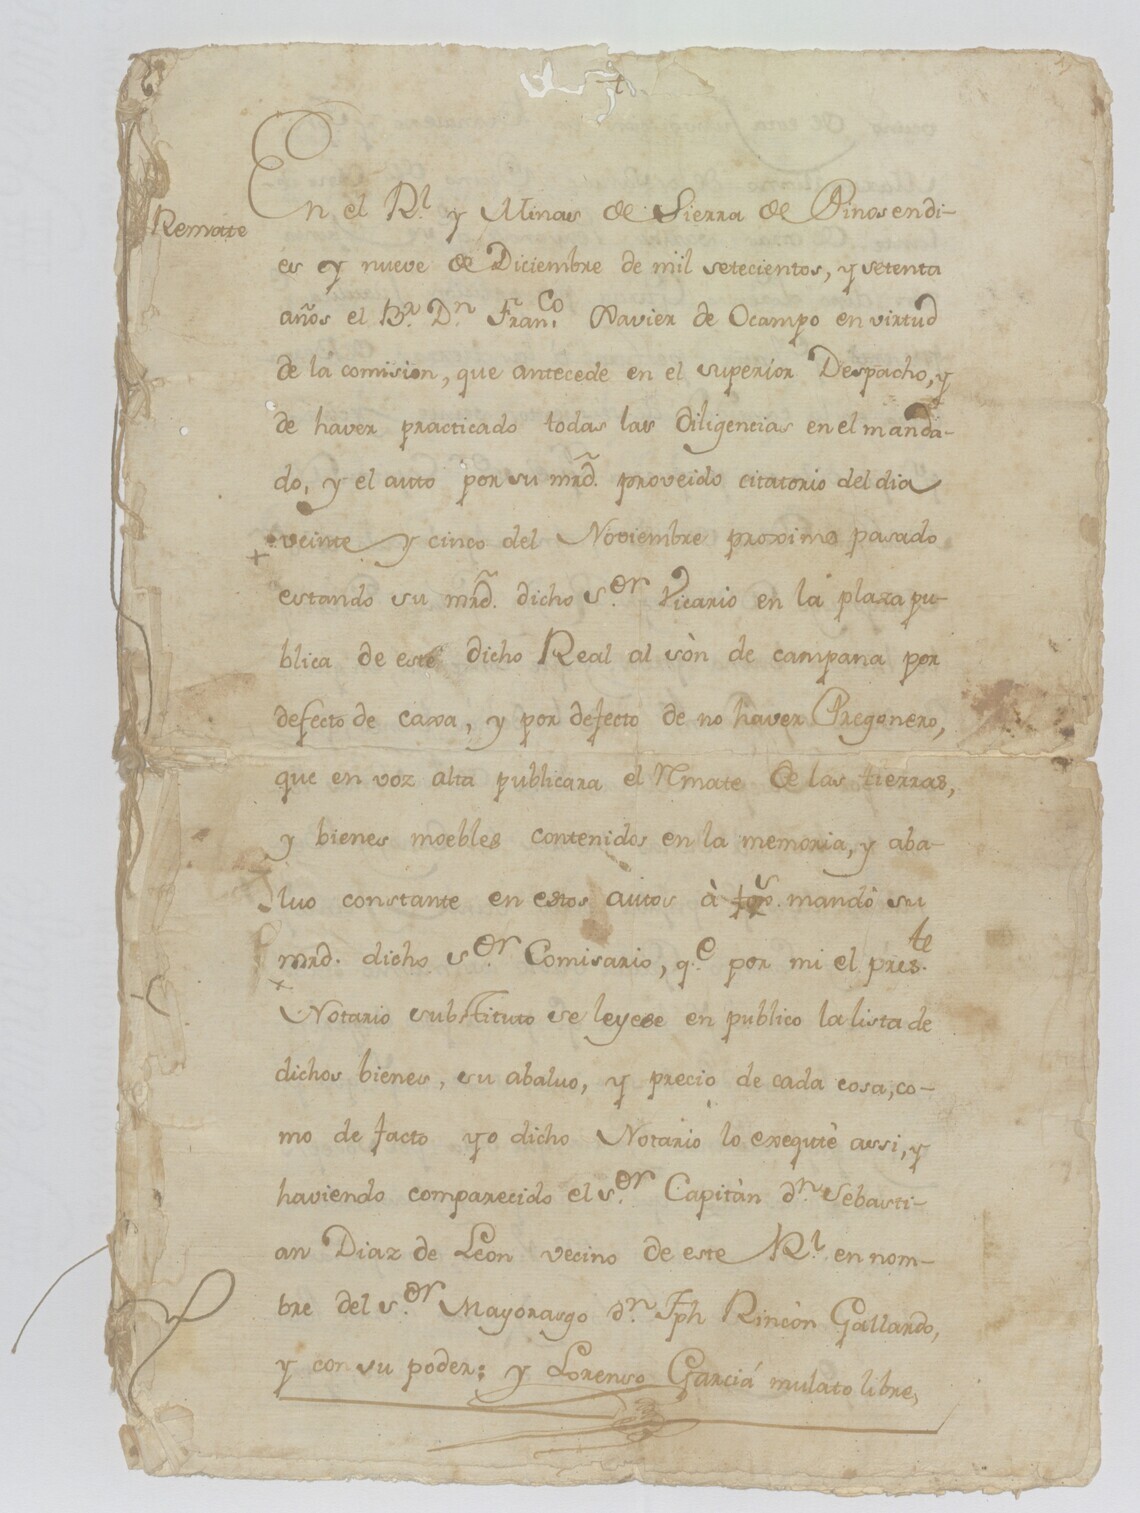 +
Remate
En el Rl. y Minas de Sierra de Pinos en di-
es y nueve de Diciembre de mil setecientos, y setenta
años el Br. Dn. Franco. Xavier de Ocampo en virtud
de la comision, que antecede en el superior Despacho, y
de haver practicado todas las diligencias en el manda-
do, y el auto por su mrd. proveido citatorio del dia
veinte y cinco del Noviembre proximo pasado
estando su mrd. dicho Sor. Vicario en la plaza pu-
blica de este dicho Real al sòn de campana por
defecto de caxa, y por defecto de no haver Pregonero,
que en voz alta publicara el Rmate de las tierras,
y bienes moebles contenidos en la memoria, y aba-
luo constante en estos autos à mandò su
mrd. dicho Sor. Comisario, qe. por mi el preste.
Notario substituto se leyese en publico la lista de
dichos bienes, su abaluo, y precio de cada cosa, co-
mo de facto yo dicho Notario lo exequtè assi, y
haviendo comparecido el Sor. Capitàn Dn. Sebasti-
an Diaz de Leon vecino de este Rl. en nom-
bre del Sor. Mayorasgo Dn. Jph Rincòn Gallardo,
y con su poder; y Lorenso Garciá mulato libre,